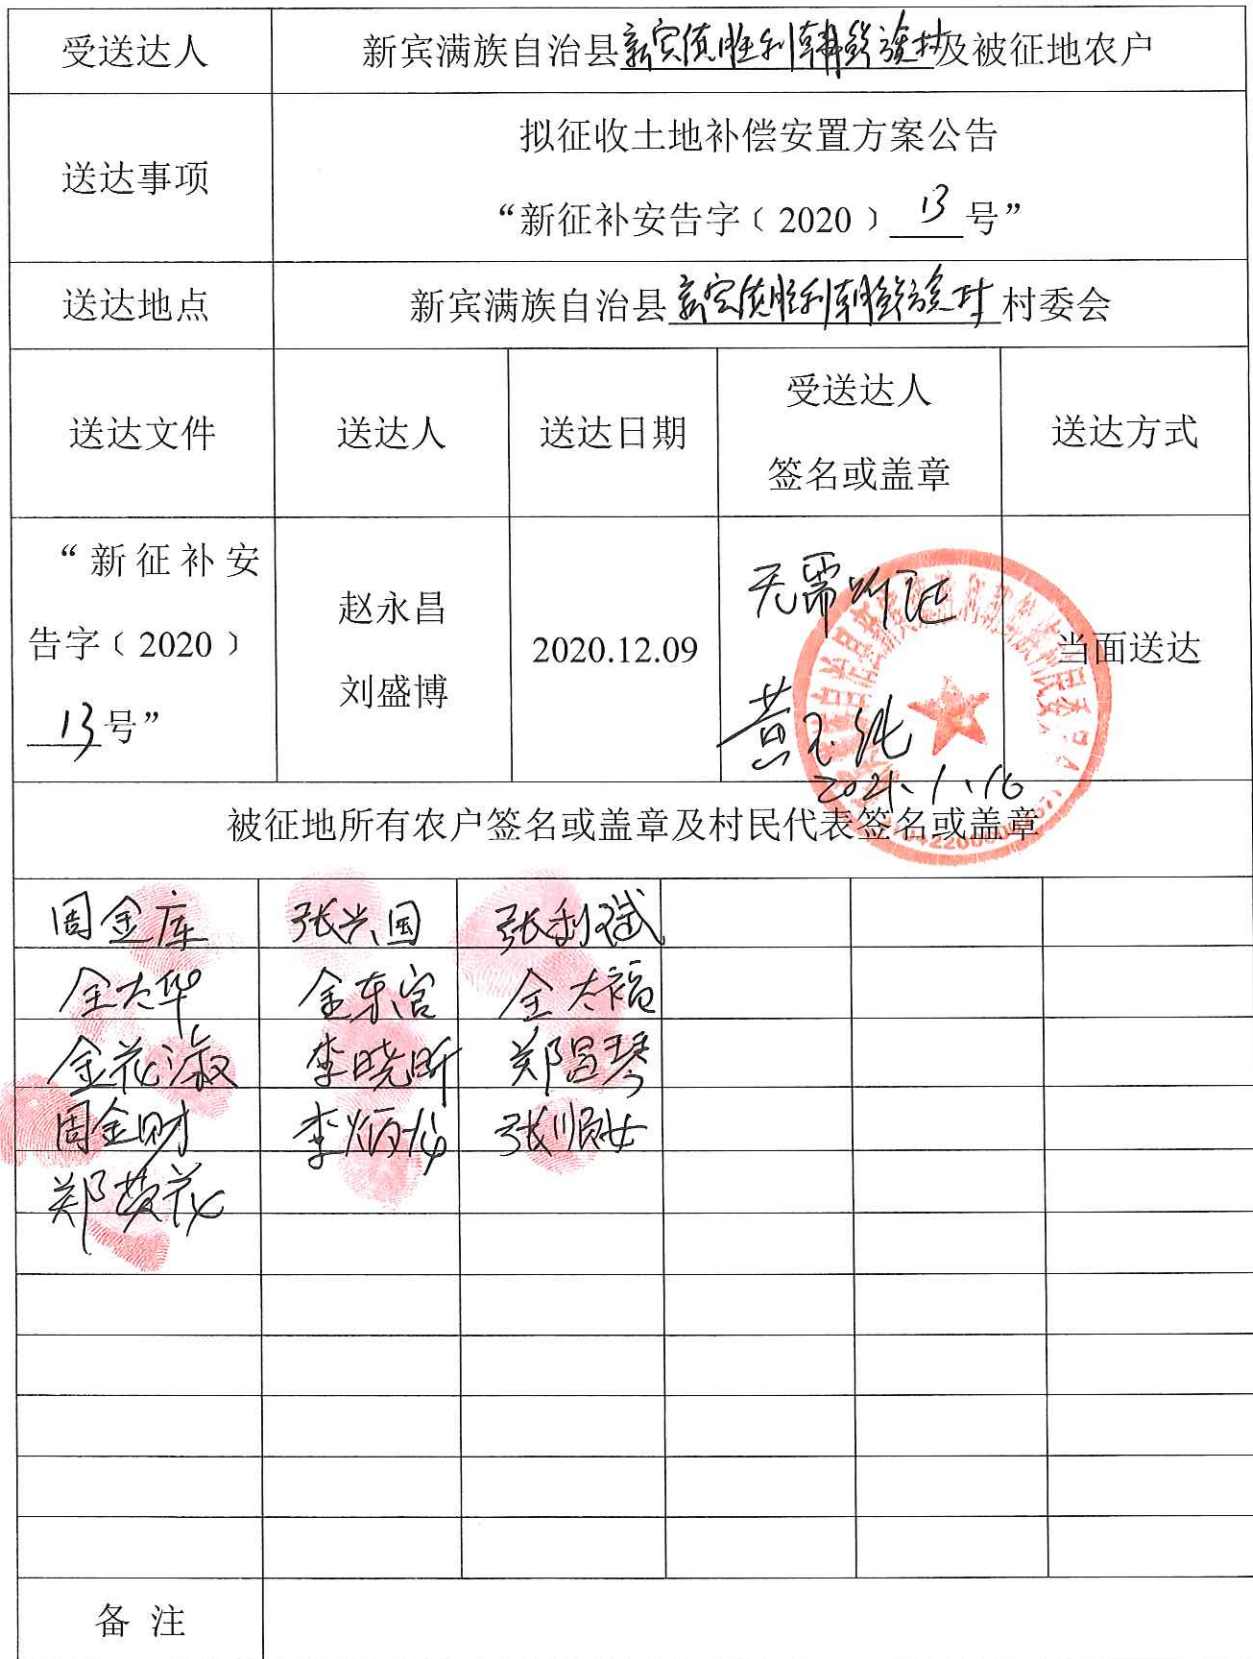 受送达人
新宾满族自治县新宾镇胜利朝鲜族村及被征地农户
送达事项
拟征收土地补偿安置方案公告
“新征补安告字﹝2020﹞13号”
送达地点
新宾满族自治县新宾镇胜利朝鲜族村村委会
送达文件 送达人 送达日期 受送达人 送达方式
签名或盖章
“新征补安
告字﹝2020﹞
13号”
赵永昌
刘盛博
2020.12.09
无需听证
黄玉纯
2021.1.16
当面送达
被征地所有农户签名或盖章及村民代表签名或盖章
周金库 张兴国 张利斌
金大华 金东官 金太福
金花淑 李晓昕 郑昌琴
周金财 李炳龙 张顺女
郑英花
备 注